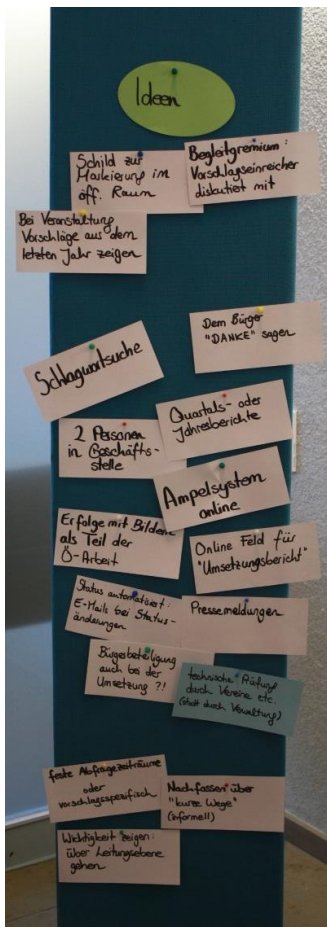 Ideen
Schild zur
Markierung im
öff. Raum
Begleitgremium:
Vorschlagseinreicher
diskutiert mit
Bei Veranstaltung
Vorschläge aus dem
letzten Jahr zeigen
Dem Bürger
"DANKE" sagen
Schlagwortsuche
Quartals- oder
Jahresberichte
2 Personen
in Geschäfts-
stelle
Ampelsystem
online
Erfolge mit Bildern
als Teil der
Ö-Arbeit
Online Feld für
"Umsetzungsbericht"
Status automatisiert:
E-Mails bei Status-
änderungen
Pressemeldungen
Bürgerbeteiligung
auch bei der
Umsetzung ?!
technische Prüfung
durch Vereine etc.
(statt durch Verwaltung)
feste Abfragezeiträume
oder
vorschlagsspezifisch
Nachfassen über
"kurze Wege"
(informell)
Wichtigkeit zeigen:
über Leitungsebene
gehen